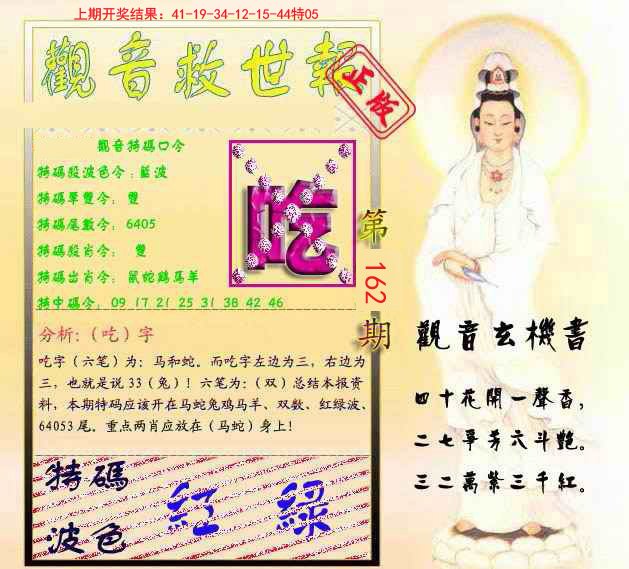 上期开奖结果：41-19-34-12-15-44特05
觀音救世報
正版
觀音特碼口令
特碼段波色令：藍波
特碼單雙令：雙
特碼尾數令：6405
特碼段肖令：雙
特碼出肖令：鼠蛇鷄馬羊
特中碼令：09 17 21 25 31 38 42 46
吃
第162期
分析:（吃）字
吃字（六笔）为：马和蛇。而吃字左边为三，右边为
三，也就是说33（兔）！六笔为:（双）总结本报资
料，本期特码应该开在马蛇兔鸡马羊、双数、红绿波、
64053尾。重点两肖应放在（马蛇）身上！
特碼
波色
紅 綠
觀音玄機書
四十花開一聲香，
二七爭芳六斗艷。
三二萬紫三千紅。